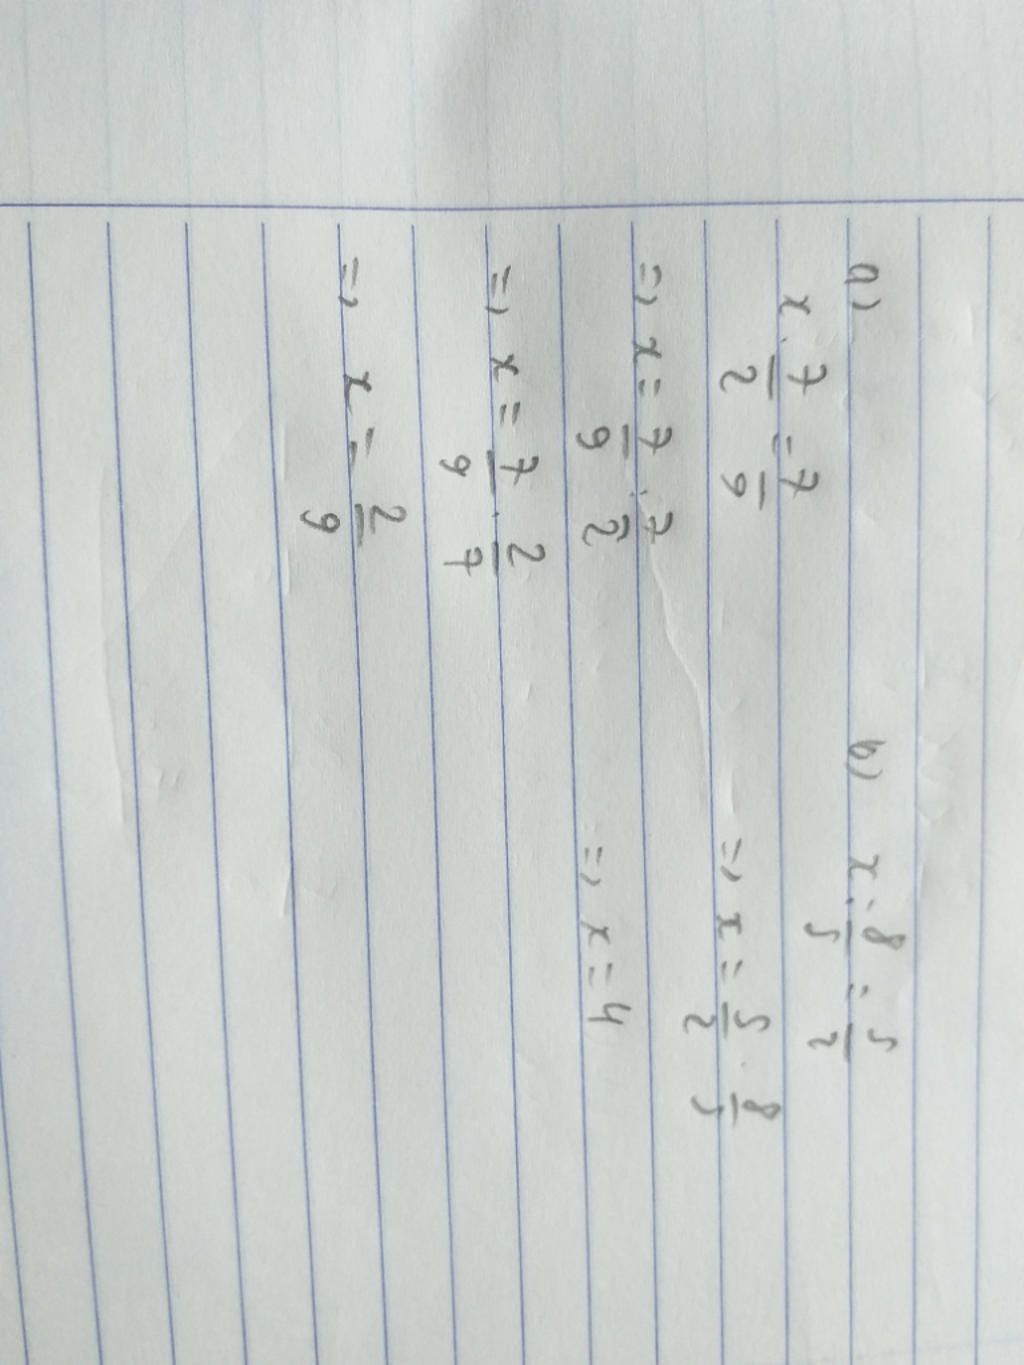 a)
x . 7/2 = 7/9
=> x = 7/9 : 7/2
=> x = 7/9 . 2/7
=> x = 2/9
b) x : 8/5 = 5/2
=> x = 5/2 . 8/5
=> x = 4